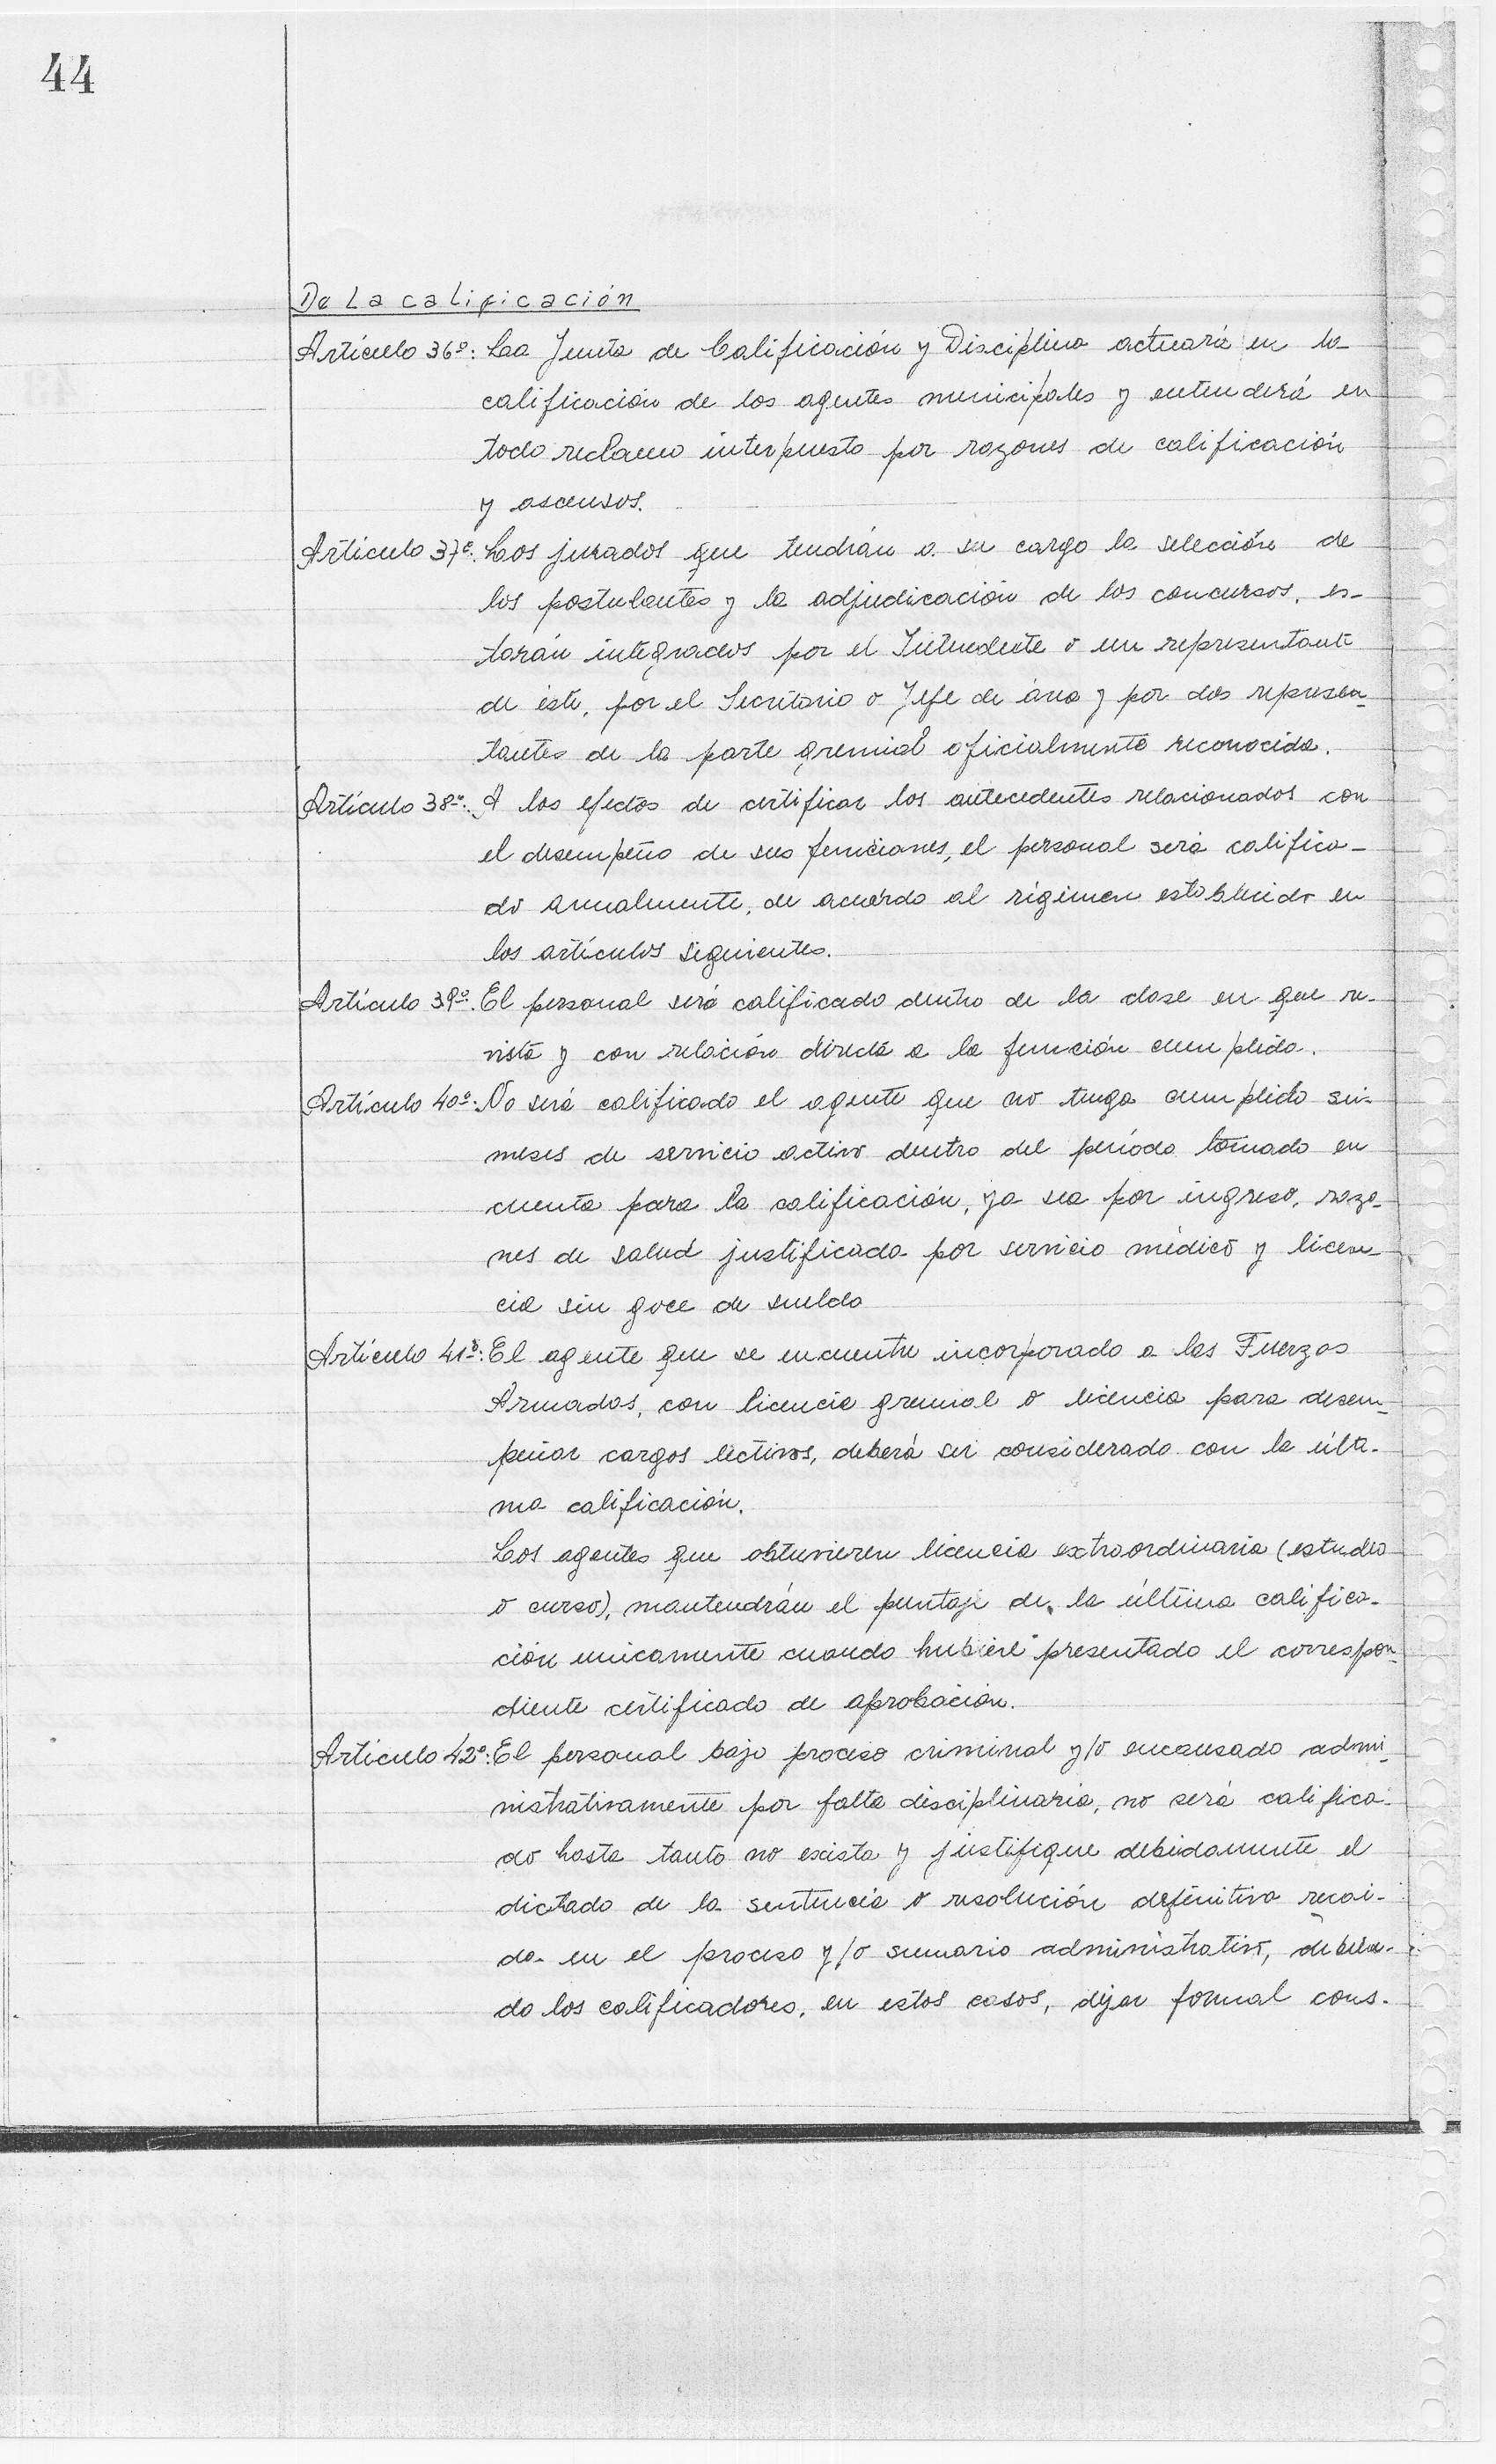 44
De la calificación
Artículo 36º: La Junta de Calificación y Disciplina actuará en la
calificación de los agentes municipales y entenderá en
todo reclamo interpuesto por razones de calificación
y ascensos.
Artículo 37º: Los jurados que tendrán a su cargo la selección de
los postulantes y la adjudicación de los concursos, es-
tarán integrados por el Intendente o un representante
de éste, por el Secretario o Jefe de área y por dos represen-
tantes de la parte gremial oficialmente reconocida.
Artículo 38º: A los efectos de certificar los antecedentes relacionados con
el desempeño de sus funciones, el personal será califica-
do anualmente, de acuerdo al régimen establecido en
los artículos siguientes.
Artículo 39º: El personal será calificado dentro de la clase en que re-
vista y con relación directa a la función cumplida.
Artículo 40º: No será calificado el agente que no tenga cumplido seis
meses de servicio activo dentro del período tomado en
cuenta para la calificación, ya sea por ingreso, razo-
nes de salud justificada por servicio médico y licen-
cia sin goce de sueldo
Artículo 41º: El agente que se encuentre incorporado a las Fuerzas
Armadas, con licencia gremial o licencia para desem-
peñar cargos lectivos, deberá ser considerado con la últi-
ma calificación.
Los agentes que obtuvieren licencia extraordinaria (estudio
o curso), mantendrán el puntaje de la última califica-
ción unicamente cuando hubiere presentado el correspon-
diente certificado de aprobación.
Artículo 42º: El personal bajo proceso criminal y/o encausado admi-
nistrativamente por falta disciplinaria, no será califica-
do hasta tanto no exista y justifique debidamente el
dictado de la sentencia o resolución definitiva recai-
da en el proceso y/o sumario administrativo, debien-
do los calificadores, en estos casos, dejar formal cons-